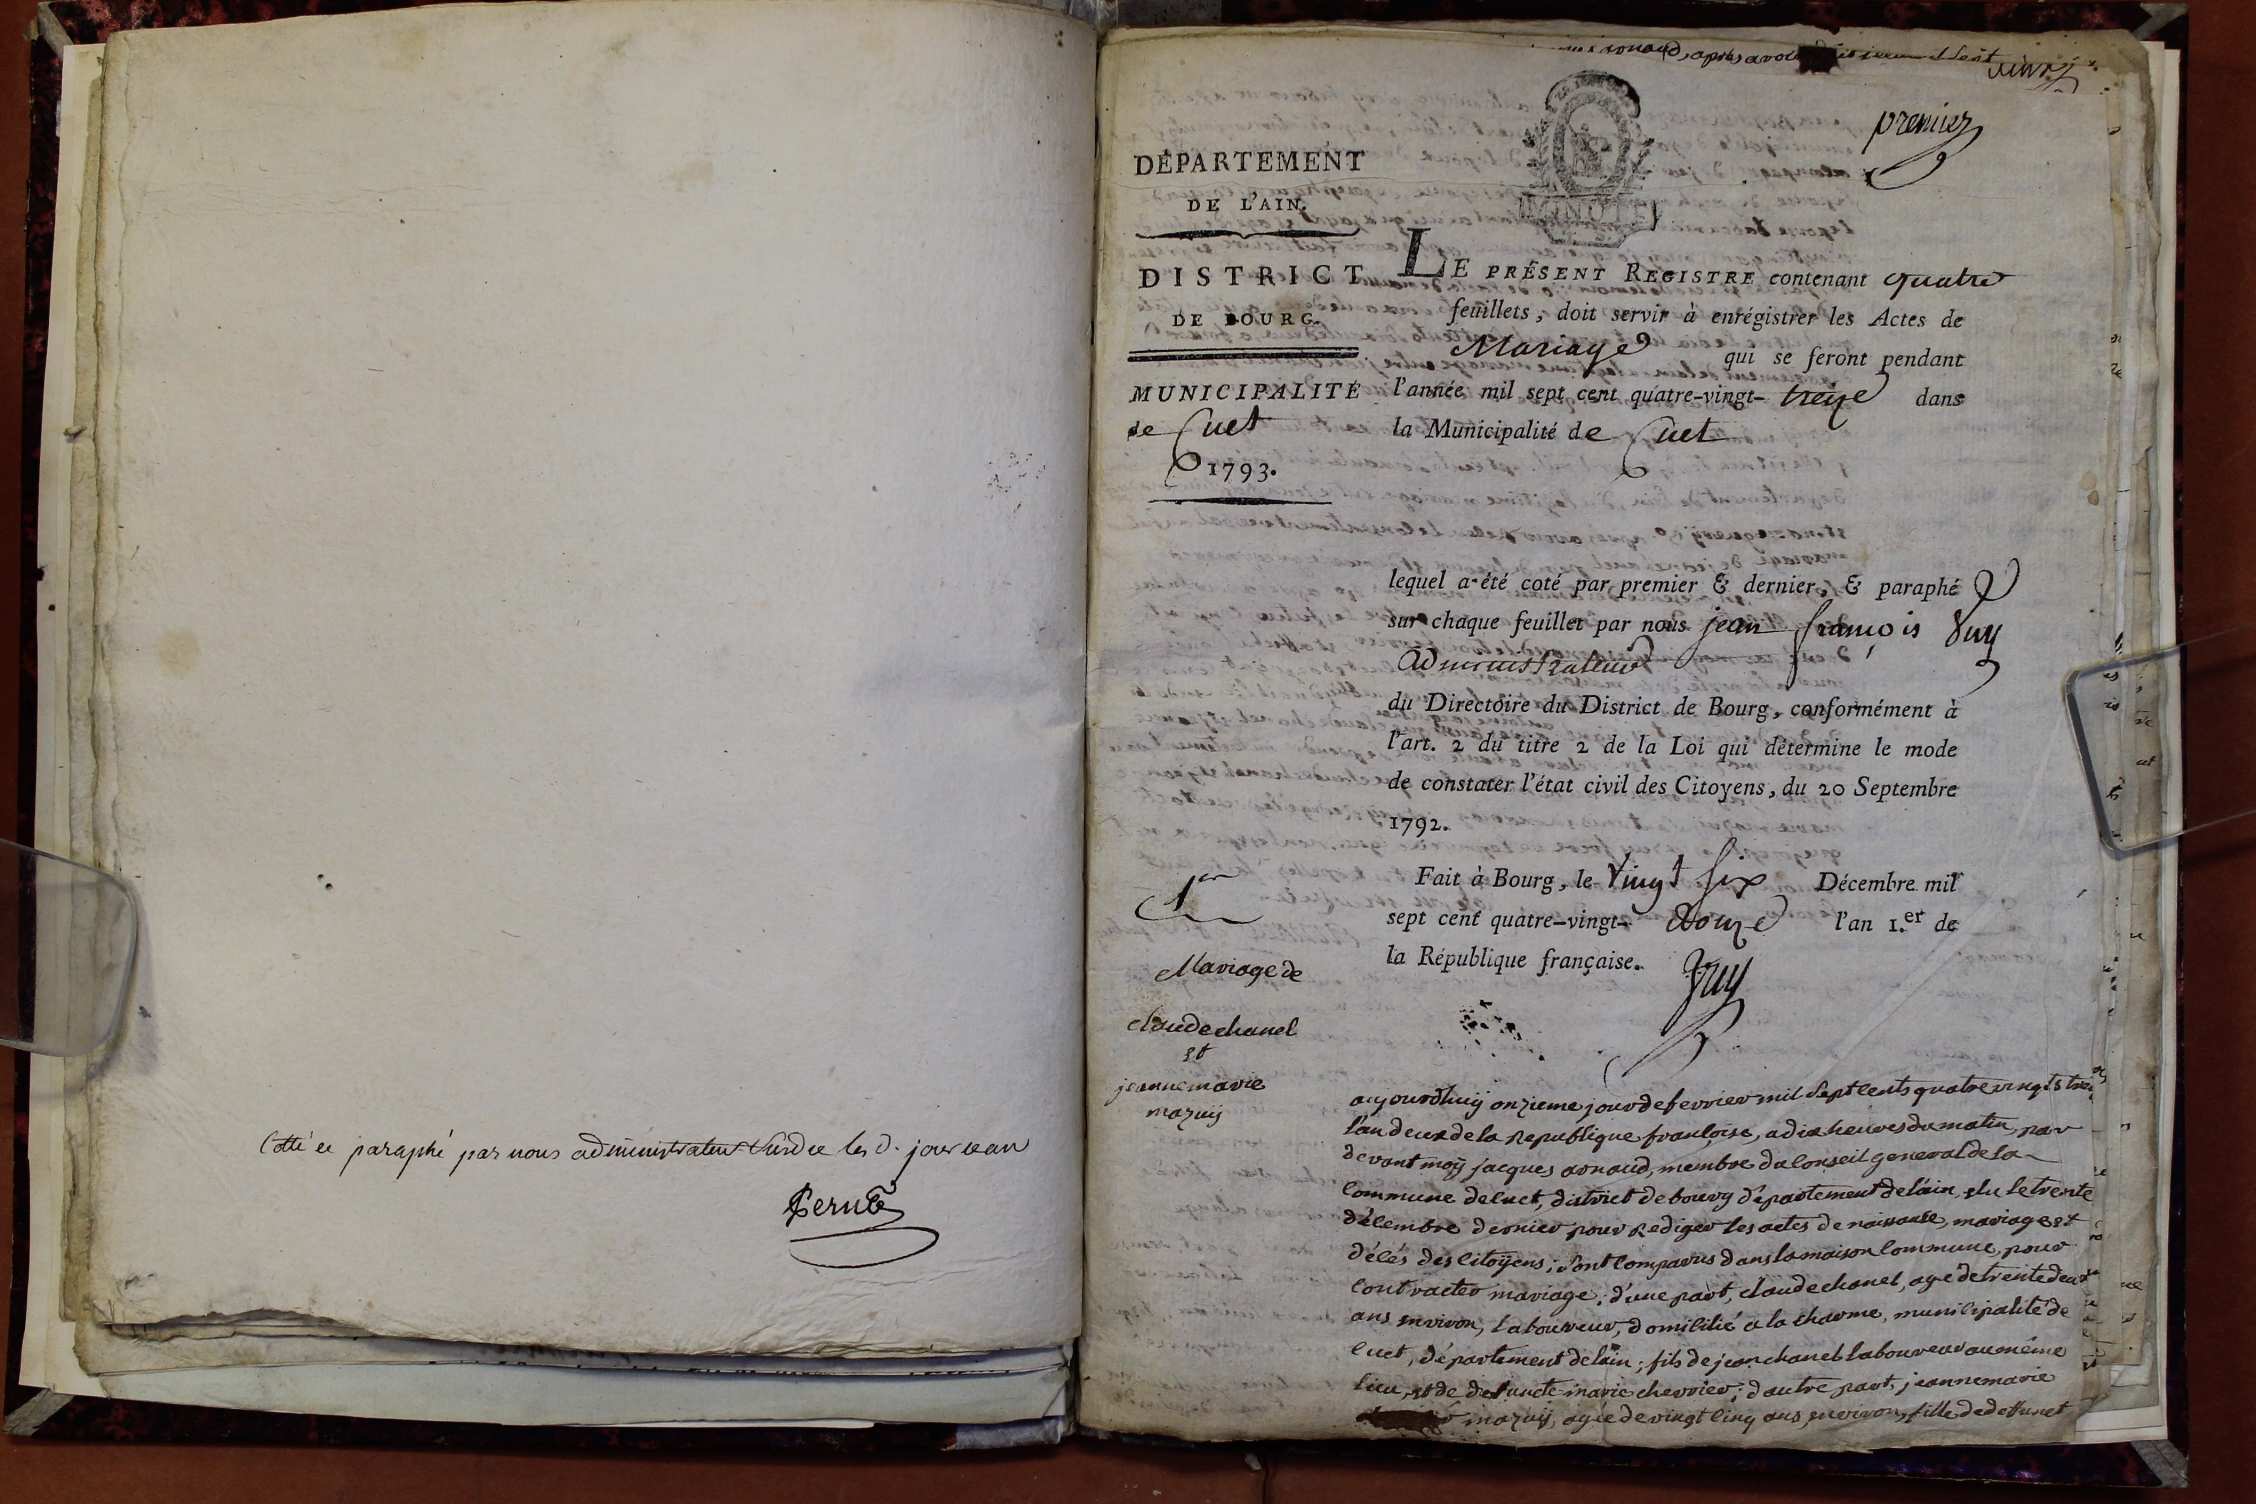 Cotté et paraphé par nous administrateur les d. jour et an
premier
DÉPARTEMENT
DE L'AIN.
DISTRICT
DE BOURG.
MUNICIPALITÉ
de Cuet
1793.
LE PRÉSENT REGISTRE contenant quatre
feuillets, doit servir à enrégistrer les Actes de
Mariage qui se feront pendant
l'année mil sept cent quatre-vingt-treize dans
la Municipalité de Cuet
lequel a été coté par premier & dernier, & paraphé
sur chaque feuillet par nous jean françois Vuy
Administrateur
du Directoire du District de Bourg, conformément à
l'art. 2 du titre 2 de la Loi qui détermine le mode
de constater l'état civil des Citoyens, du 20 Septembre
1792.
Fait à Bourg, le Vingt six Décembre mil
sept cent quatre-vingt-douze l'an 1.er de
la République française.
Vuy
1er
Mariage de
claude chanel
et
jeanne marie
mazuy
aujourdhuy onzieme jour de fevrier mil sept cents quatre vingts
l'an deux de la Republique françoise, a dix heures du matin, par
devant moy jacques arnaud, membre du Conseil general de la
Commune de Cuet, district de bourg département de l'ain, elu le trente
décembre dernier pour Rediger les actes de naissance, mariage et
décés des Citoÿens; sont Comparus dans la maison Commune, pour
Contracter mariage; d'une part, claude chanel, agé de trente deux
ans environ, laboureur, domicilié a la charme, municipalité de
Cuet, département de l'ain; fils de jean chanel laboureur au même
lieu, et de defuncte marie chevrier; d'autre part, jeanne marie
mazuy, agée de vingt cinq ans environ, fille de deffunct